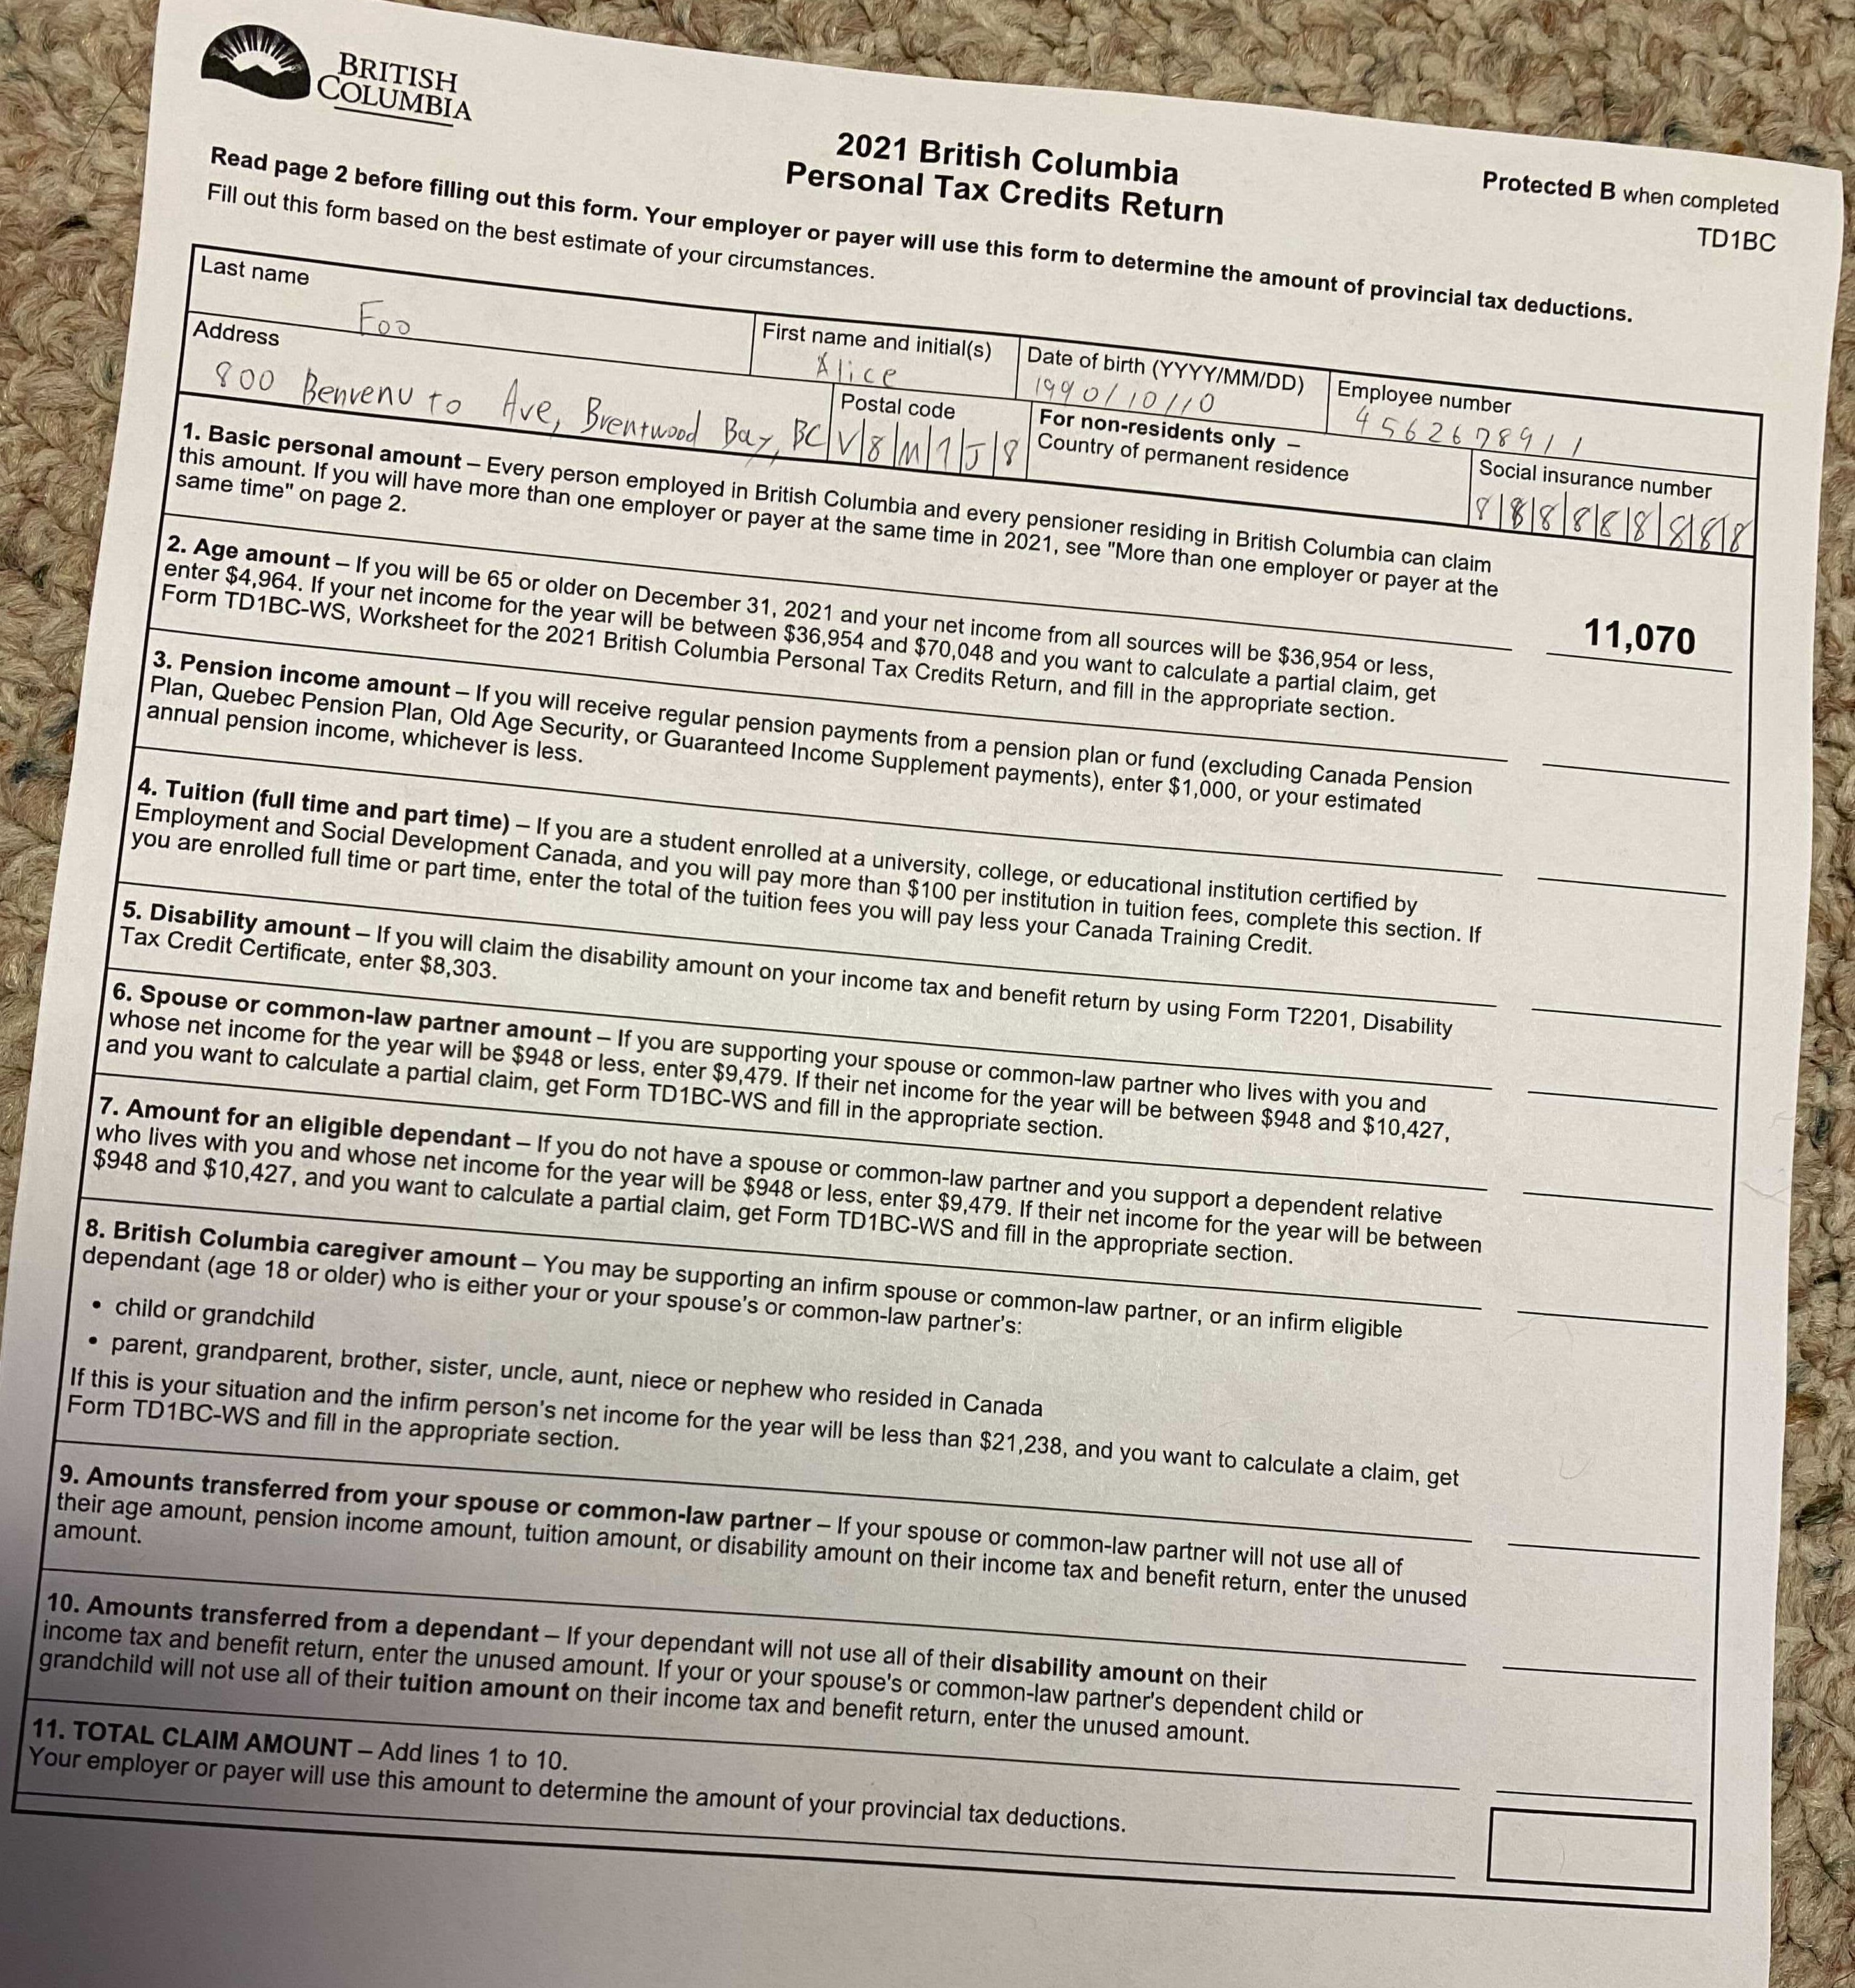 BRITISH
COLUMBIA
2021 British Columbia
Personal Tax Credits Return
Protected B when completed
TD1BC
Read page 2 before filling out this form. Your employer or payer will use this form to determine the amount of provincial tax deductions.
Fill out this form based on the best estimate of your circumstances.
Last name
Foo
First name and initial(s)
Alice
Date of birth (YYYY/MM/DD)
1990/10/10
Employee number
4562678911
Address
800 Benvenuto Ave, Brentwood Bay, BC
Postal code
V8M1J8
For non-residents only –
Country of permanent residence
Social insurance number
888888888
1. Basic personal amount – Every person employed in British Columbia and every pensioner residing in British Columbia can claim
this amount. If you will have more than one employer or payer at the same time in 2021, see "More than one employer or payer at the
same time" on page 2.
11,070
2. Age amount – If you will be 65 or older on December 31, 2021 and your net income from all sources will be $36,954 or less,
enter $4,964. If your net income for the year will be between $36,954 and $70,048 and you want to calculate a partial claim, get
Form TD1BC-WS, Worksheet for the 2021 British Columbia Personal Tax Credits Return, and fill in the appropriate section.
3. Pension income amount – If you will receive regular pension payments from a pension plan or fund (excluding Canada Pension
Plan, Quebec Pension Plan, Old Age Security, or Guaranteed Income Supplement payments), enter $1,000, or your estimated
annual pension income, whichever is less.
4. Tuition (full time and part time) – If you are a student enrolled at a university, college, or educational institution certified by
Employment and Social Development Canada, and you will pay more than $100 per institution in tuition fees, complete this section. If
you are enrolled full time or part time, enter the total of the tuition fees you will pay less your Canada Training Credit.
5. Disability amount – If you will claim the disability amount on your income tax and benefit return by using Form T2201, Disability
Tax Credit Certificate, enter $8,303.
6. Spouse or common-law partner amount – If you are supporting your spouse or common-law partner who lives with you and
whose net income for the year will be $948 or less, enter $9,479. If their net income for the year will be between $948 and $10,427,
and you want to calculate a partial claim, get Form TD1BC-WS and fill in the appropriate section.
7. Amount for an eligible dependant – If you do not have a spouse or common-law partner and you support a dependent relative
who lives with you and whose net income for the year will be $948 or less, enter $9,479. If their net income for the year will be between
$948 and $10,427, and you want to calculate a partial claim, get Form TD1BC-WS and fill in the appropriate section.
8. British Columbia caregiver amount – You may be supporting an infirm spouse or common-law partner, or an infirm eligible
dependant (age 18 or older) who is either your or your spouse's or common-law partner's:
• child or grandchild
• parent, grandparent, brother, sister, uncle, aunt, niece or nephew who resided in Canada
If this is your situation and the infirm person's net income for the year will be less than $21,238, and you want to calculate a claim, get
Form TD1BC-WS and fill in the appropriate section.
9. Amounts transferred from your spouse or common-law partner – If your spouse or common-law partner will not use all of
their age amount, pension income amount, tuition amount, or disability amount on their income tax and benefit return, enter the unused
amount.
10. Amounts transferred from a dependant – If your dependant will not use all of their disability amount on their
income tax and benefit return, enter the unused amount. If your or your spouse's or common-law partner's dependent child or
grandchild will not use all of their tuition amount on their income tax and benefit return, enter the unused amount.
11. TOTAL CLAIM AMOUNT – Add lines 1 to 10.
Your employer or payer will use this amount to determine the amount of your provincial tax deductions.